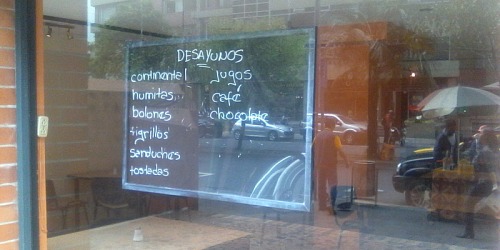 DESAYUNOS
continental jugos
humitas café
bolones chocolate
tigrillos
sanduches
tostadas